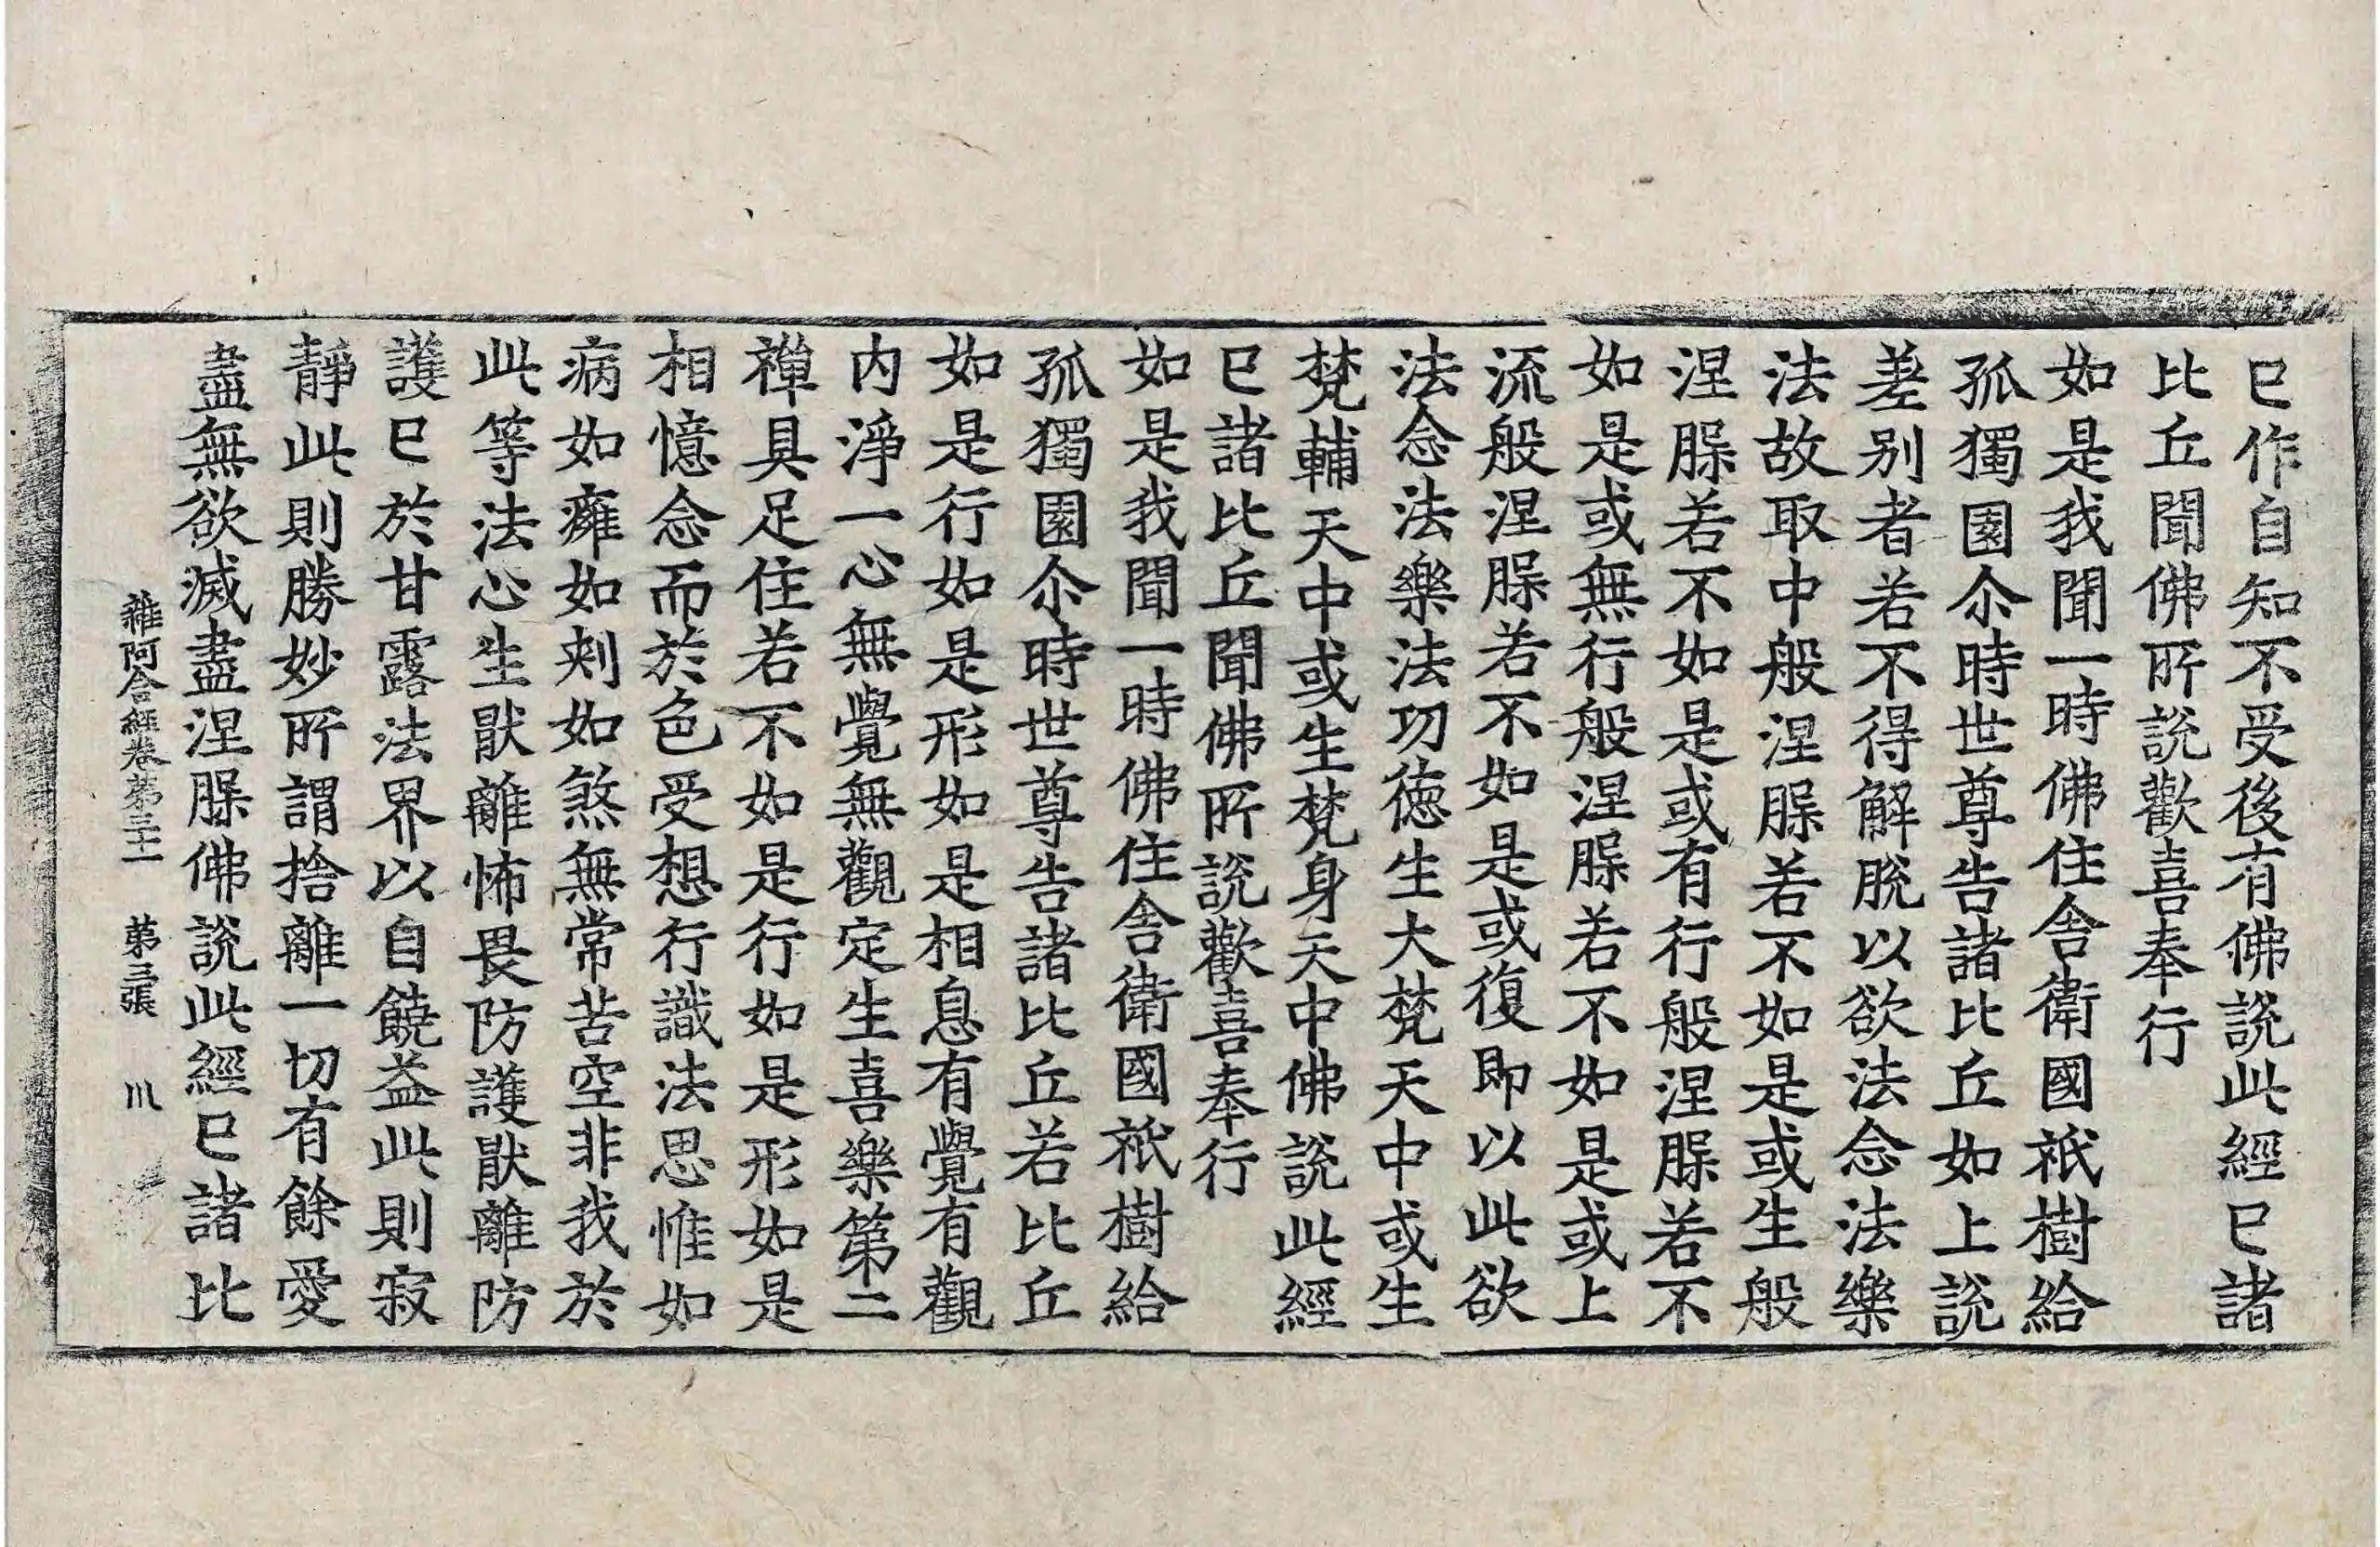 已作自知不受後有佛說此經已諸
比丘聞佛所說歡喜奉行
如是我聞一時佛住舍衛國祇樹給
孤獨園尒時世尊告諸比丘如上說
差别者若不得解脫以欲法念法樂
法故取中般涅槃若不如是或生般
涅槃若不如是或有行般涅槃若不
如是或無行般涅槃若不如是或上
流般涅槃若不如是或復即以此欲
法念法樂法功德生大梵天中或生
梵輔天中或生梵身天中佛說此經
已諸比丘聞佛所說歡喜奉行
如是我聞一時佛住舍衛國祇樹給
孤獨園尒時世尊告諸比丘若比丘
如是行如是形如是相息有覺有觀
内淨一心無覺無觀定生喜樂第二
禪具足住若不如是行如是形如是
相憶念而於色受想行識法思惟如
病如癰如刺如煞無常苦空非我於
此等法心生猒離怖畏防護猒離防
護已於甘露法界以自饒益此則寂
靜此則勝妙所謂捨離一切有餘愛
盡無欲滅盡涅槃佛說此經已諸比
雜阿含經卷第三十一 苐三張 㘨